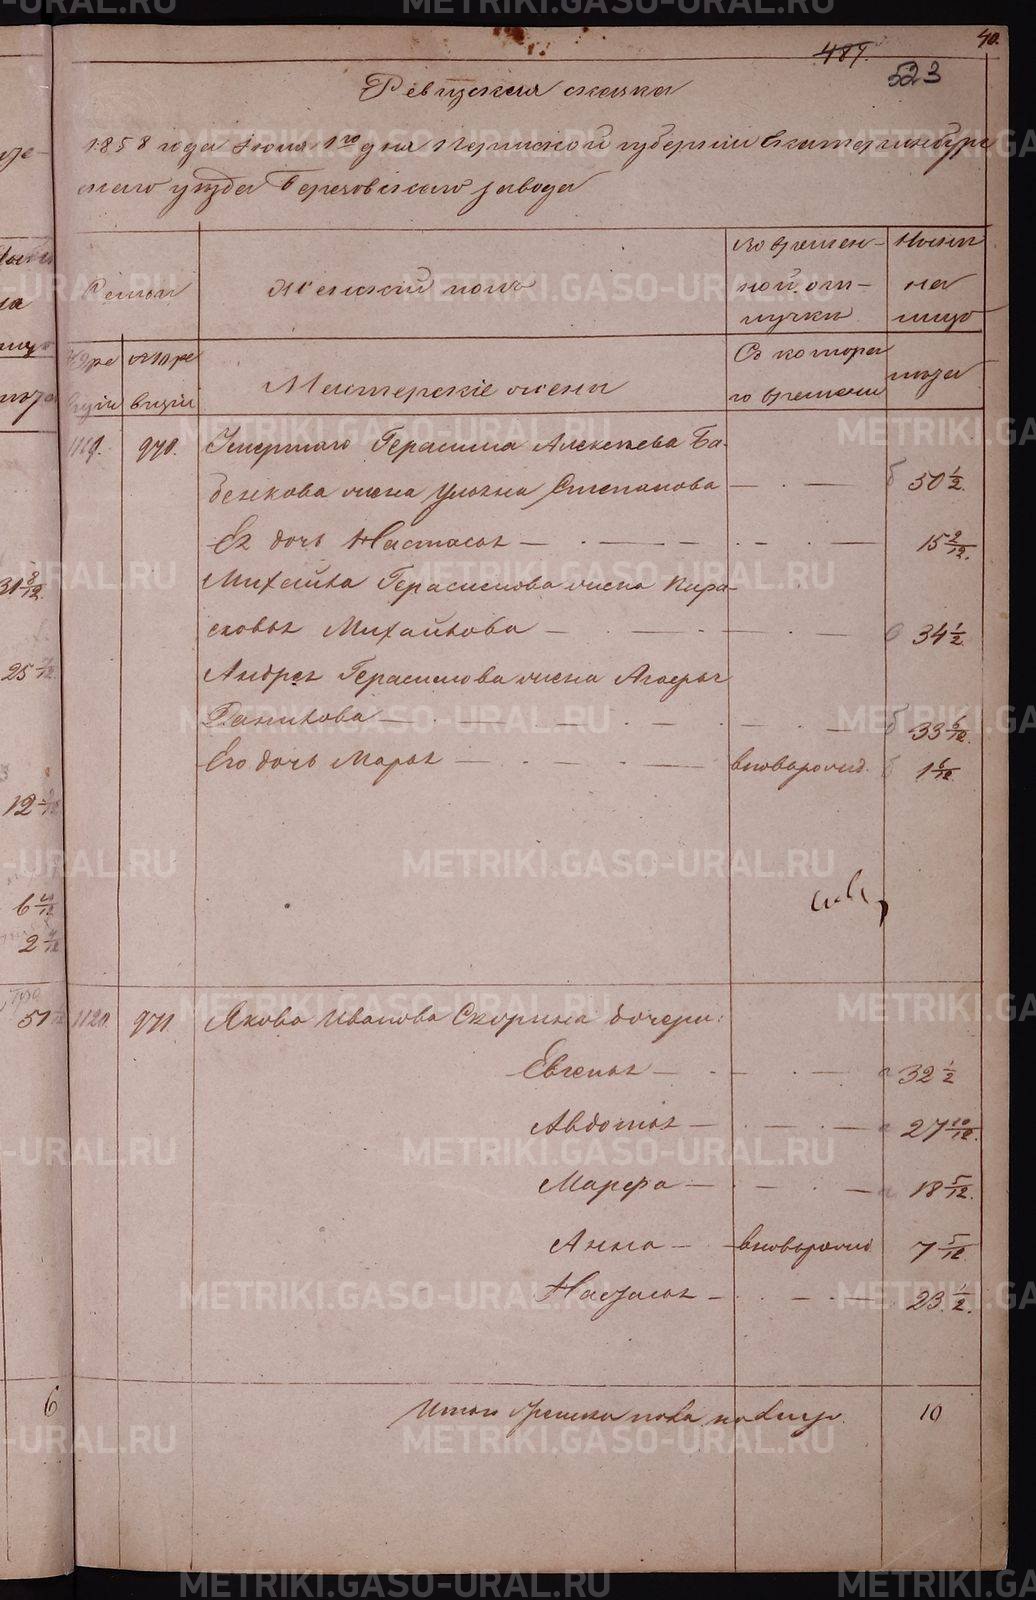 40.
487.
523
Ревизская сказка
1858 года Июня 1го дня Пермской губернии Екатеринбург
скаго уезда Березовскаго завода
Семьи
Женский полъ
Во времен-
ной от-
лучки
Ныне
на
лицо
По ре
визии
Мастерскіе жены
Съ котора
го времени
лета
1119.
970.
Умершаго Герасима Алексеева Ба-
бенкова жена Ульяна Степанова
50 1/2.
Ея дочь Настасья
15 2/12.
Михайла Герасимова жена Пара-
сковья Михайлова
34 1/2.
Андрея Герасимова жена
Данилова
33 6/12.
Его дочь Марья
вноворожд.
1 6/12.
1120.
971.
Якова Иванова Скорина дочери:
Евгенья
32 1/2
Авдотья
27 10/12.
Марфа
18 5/12.
Анна
вноворожд
7 5/12.
Настасья
23 1/2.
Итого женска пола на лицо.
10
31 8/12.
25
12
6
2
51
6
METRIKI.GASO-URAL.RU